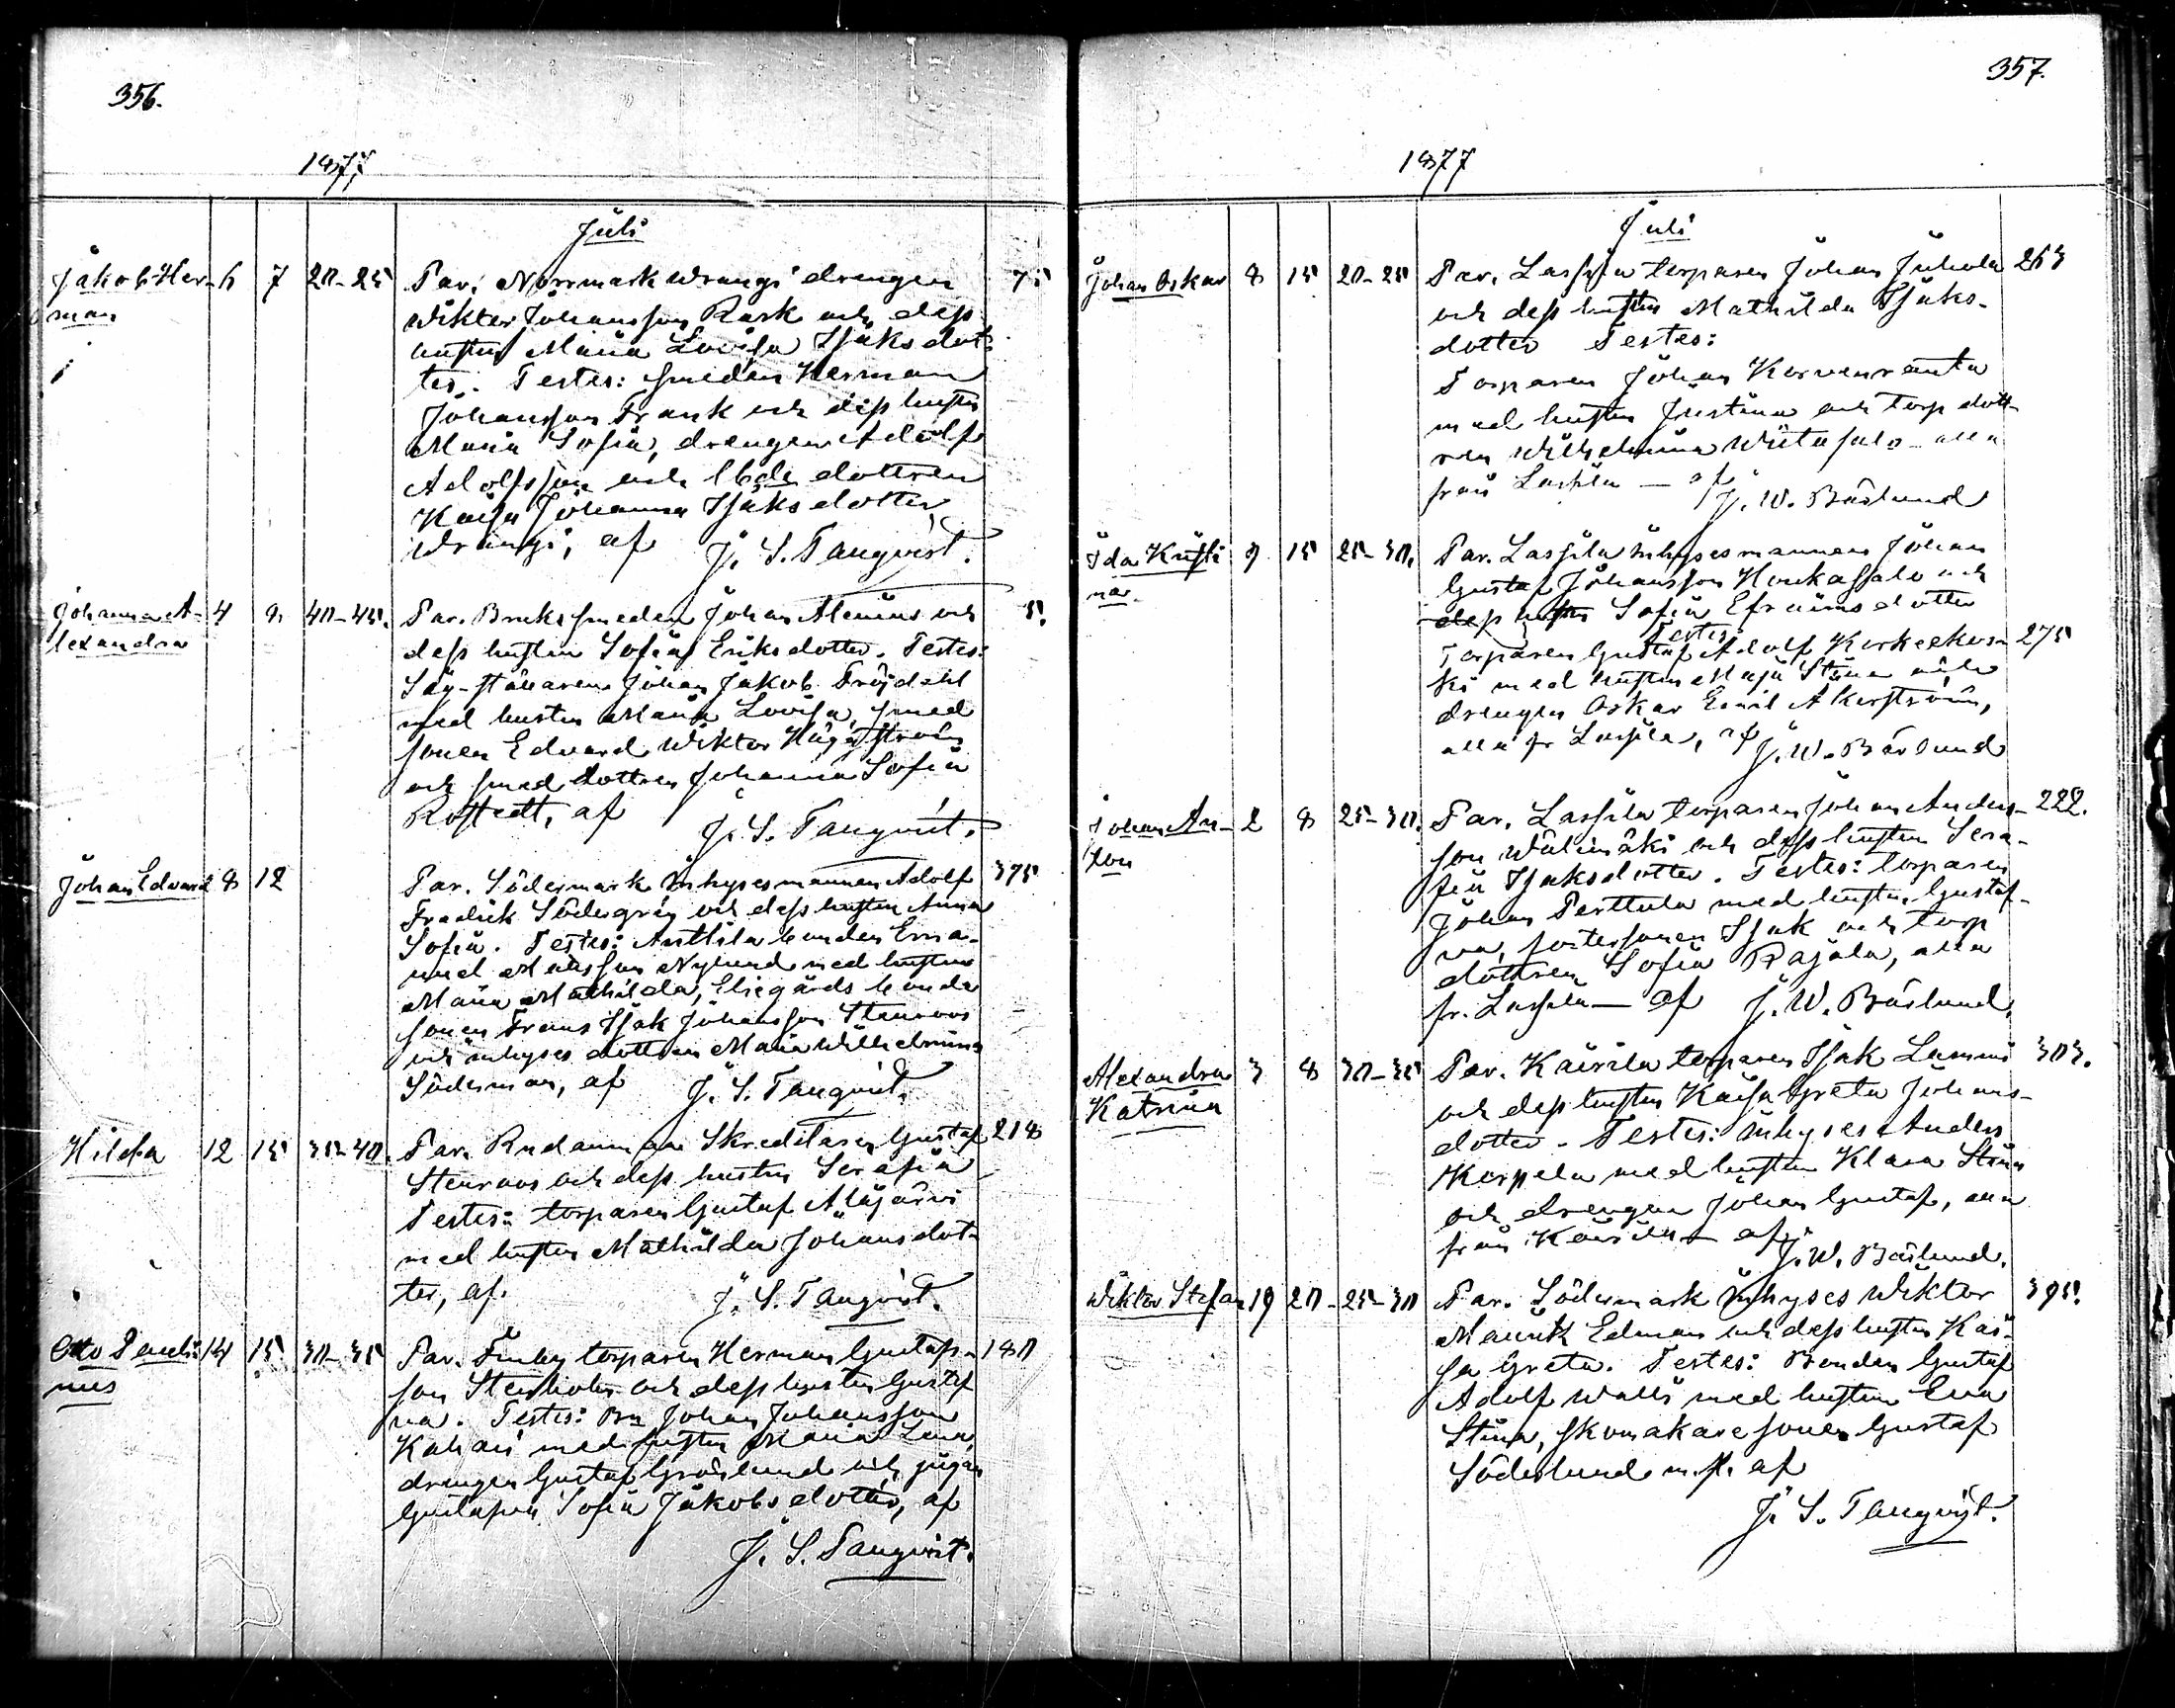 356.
1877
Juli
Jakob Her- 6 7 20-25 Par. Norrmark Wrangi drengen 75
man Wiktor Johansson Rask och dess
hustru Maria Lovisa Isaksdot-
ter. Testes: smeden Herman
Johansson Frank och dess hustru
Maria Sofia, drengen Adolf
Adolfsson och dottren
Kaisa Johanna Isaksdotter
Wrangi, af J. S. Tanqvist.
Johanna A- 4 8 40-45. Par. Bruks smeden Johan Alenius och 5.
lexandra dess hustru Sofia Eriksdotter. Testes:
Såg-ställaren Johan Jakob Fröjdahl
med hustru Maria Lovisa, smed
sonen Edvard Wiktor Häggström
och smed dottren Johanna Sofia
Rostedt, af J. S. Tanqvist.
Johan Edvard 8 12 Par. Södermark inhysesmannen Adolf 375
Fredrik Södergren och dess hustru Anna
Sofia. Testes: Anttila bonden Ema-
nuel Matsson Nylund med hustru
Maria Mathilda, Eliegårds bonde
sonen Frans Isak Johansson Stenroos
och inhyses dottren Maria Wilhelmina
Söderman, af J. S. Tanqvist.
Hilda 12 15 35-40. Par. Rudanmaa Skreddaren Gustaf 218
Stenroos och dess hustru Serafia
Testes: torparen Gustaf Alajärvi
med hustru Mathilda Johansdot-
ter, af J. S. Tanqvist.
Otto 14 15 30-35 Par. Finby torparen Herman Gustafs- 180
nus son Stenholm och dess hustru Gustaf
va. Testes: Johan Johansson
Kahari med hustru Maria Lena,
drengen Gustaf Grönlund och pigan
Gustafva Sofia Jakobsdotter, af
J. S. Tanqvist.
357.
1877
Juli
Johan Oskar 8 15 20-25 Par. Lassila torparen Johan Juhola 263
och dess hustru Mathilda Isaks-
dotter Testes:
Torparen Johan Korvenranta
med hustru Justina och torp dott-
ren Wilhelmina Wiitasalo - alla
från Lassila - af J. W. Båslund
Ida Kristi- 9 15 25-30. Par. Lassila inhysesmannen Johan
na. Gustaf Johansson Honkasalo och
dess hustru Sofia Efraimsdotter
Testes:
Torparen Gustaf Adolf Kerkeekos- 275
ki med hustru Maja Stina och
drengen Oskar Emil Akerström,
alla fr Lassila, af J. W. Båslund
Johan An- 2 8 25-30. Par. Lassila torparen Johan Anders- 222.
ton son Wälimäki och dess hustru Sera-
fia Isaksdotter. Testes: torparen
Johan Perttula med hustru Gustaf-
va, fostersonen Isak och torp
dottren Sofia Rajala, alla
fr. Lassila - af J. W. Båslund.
Alexandra 3 8 30-35 Par. Kairila torparen Isak Lammi 303.
Katrina och dess hustru Kaisa Greta Johans-
dotter. Testes: inhyses Anders
Korpela med hustru Klara Stina
och drengen Johan Gustaf, alla
från Kairila - af J. W. Båslund.
Wiktor Stefan 19 20 - 25-30 Par. Södermark inhyses Wiktor 395.
Maurits Edman och dess hustru Kai-
sa Greta. Testes: Bonden Gustaf
Adolf Walls med hustru Eva
Stina, skomakare sonen Gustaf
Söderlund m. fl. af
J. S. Tanqvist.